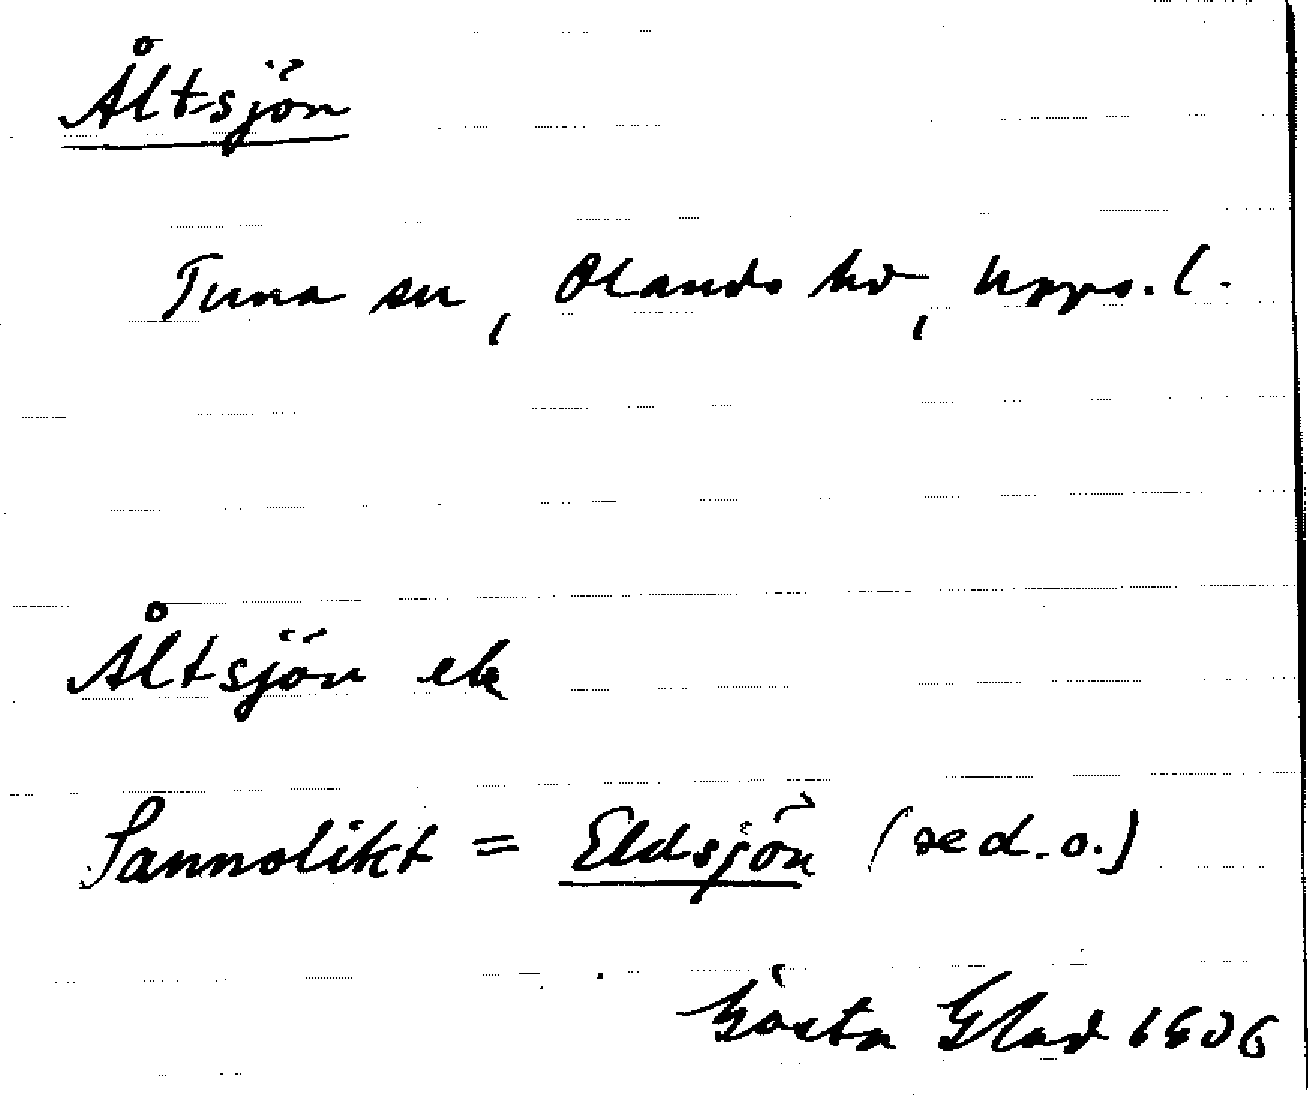 Åltsjön
Tuna sn, Olands hd, Upps. l.
Åltsjön ek
Sannolikt = Eldsjön (se d. o.)
Gösta Glad 1906